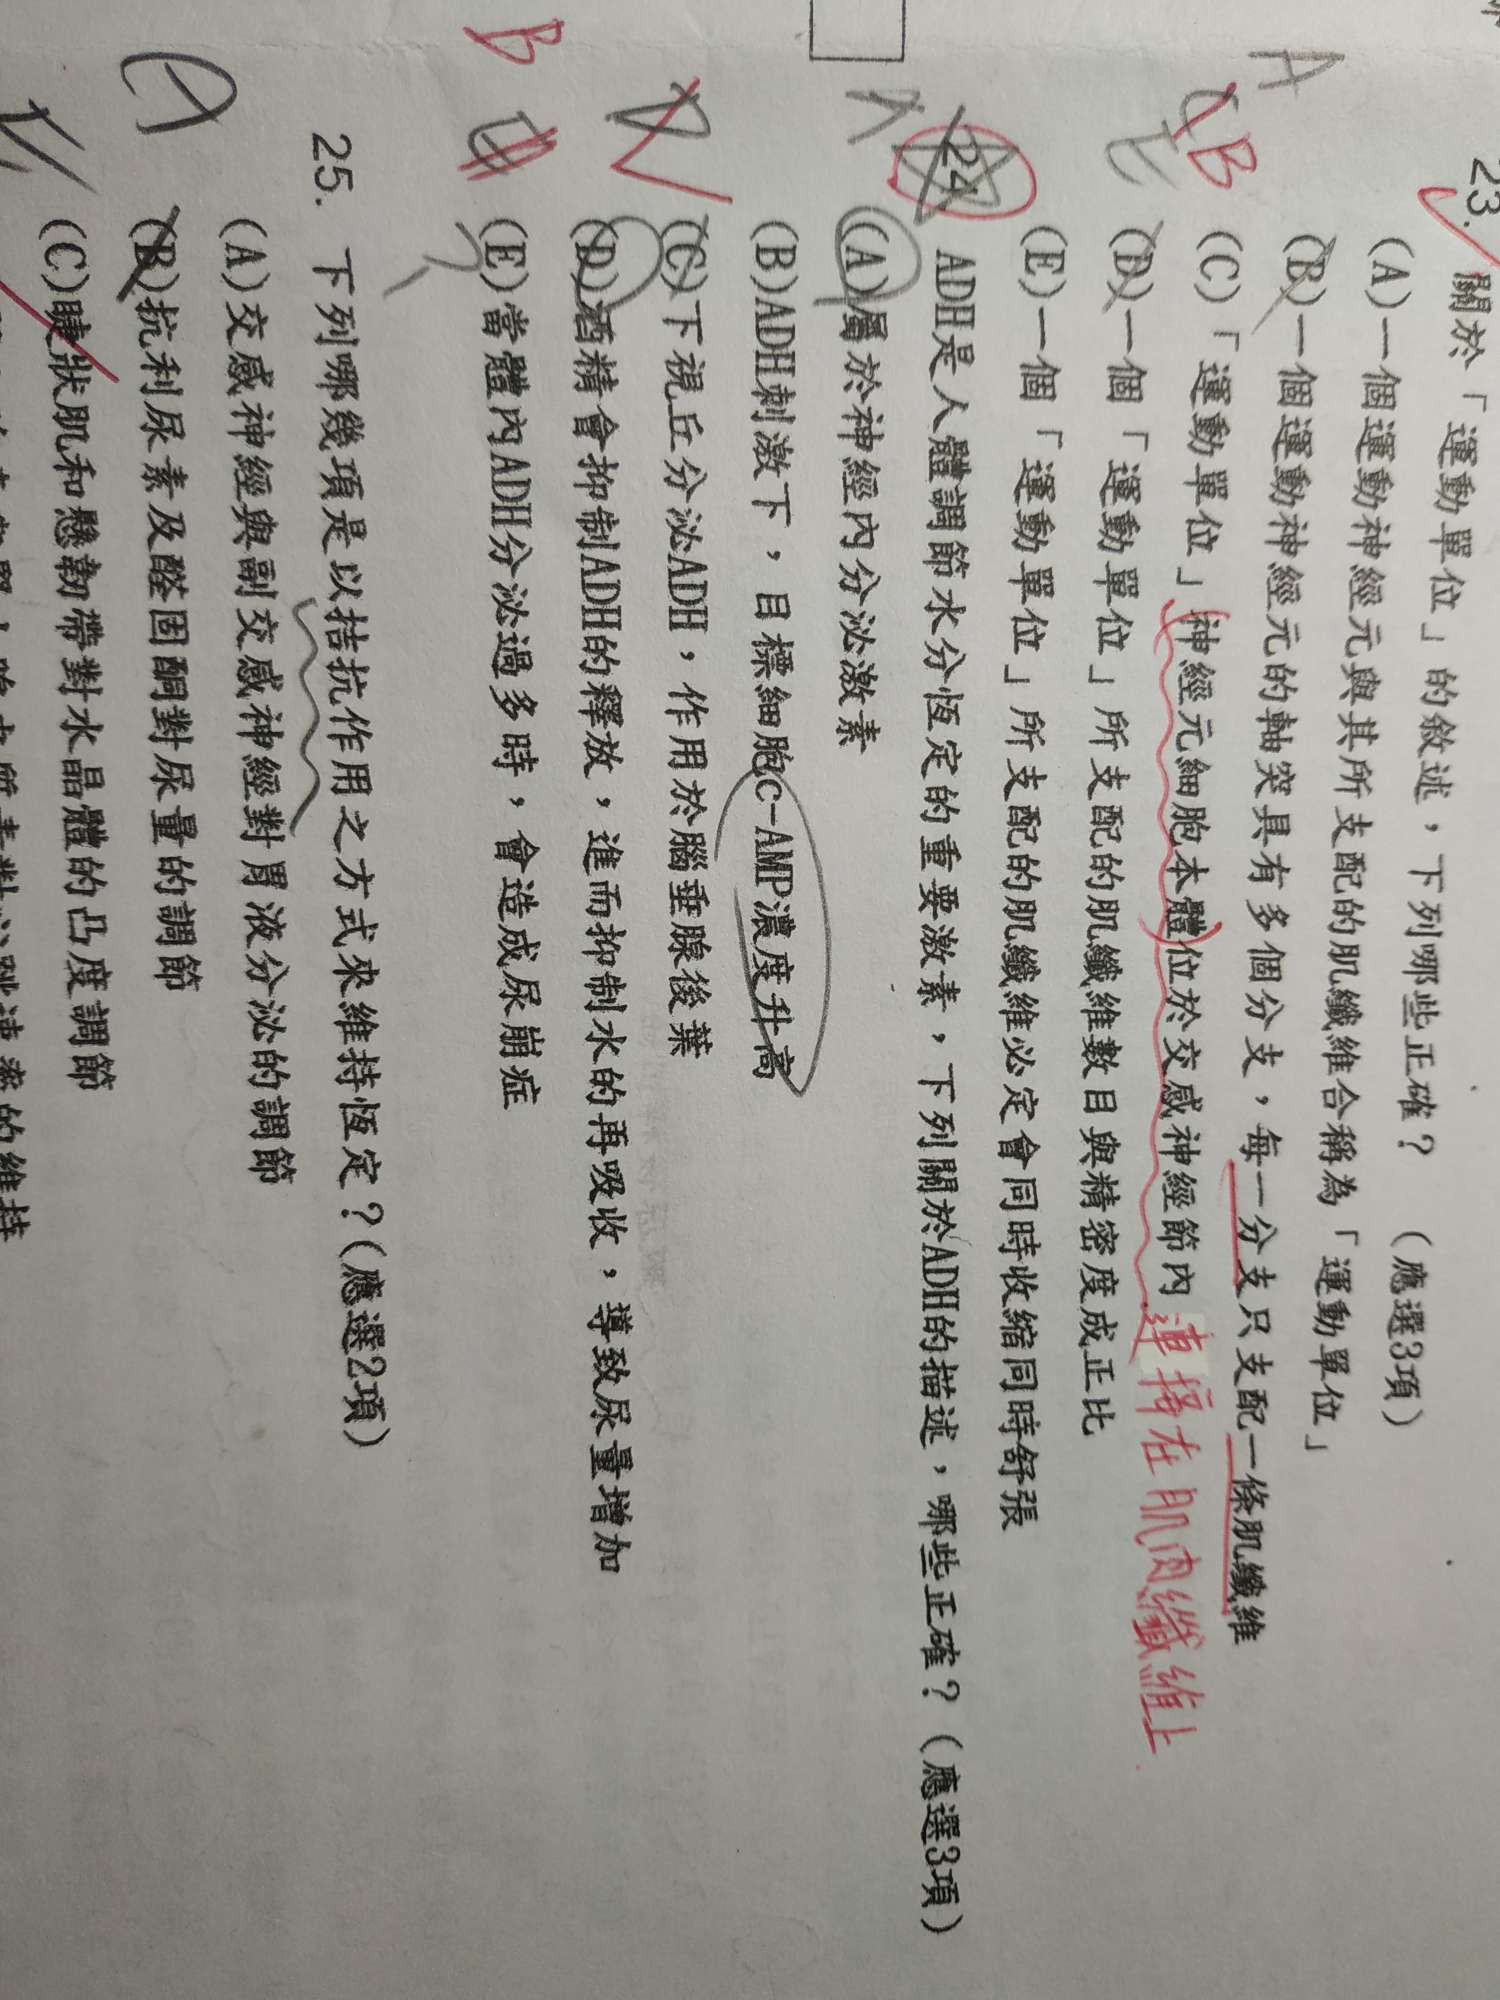 23. 關於「運動單位」的敘述，下列哪些正確？（應選3項）
(A)一個運動神經元與其所支配的肌纖維合稱為「運動單位」
(B)一個運動神經元的軸突具有多個分支，每一分支只支配一條肌纖維
(C)「運動單位」神經元細胞本體位於交感神經節內 連接在肌肉纖維上
(D)一個「運動單位」所支配的肌纖維數目與精密度成正比
(E)一個「運動單位」所支配的肌纖維必定會同時收縮同時舒張
A
B
E
24. ADH是人體調節水分恆定的重要激素，下列關於ADH的描述，哪些正確？（應選3項）
(A)屬於神經內分泌激素
(B)ADH刺激下，目標細胞C-AMP濃度升高
(C)下視丘分泌ADH，作用於腦垂腺後葉
(D)酒精會抑制ADH的釋放，進而抑制水的再吸收，導致尿量增加
(E)當體內ADH分泌過多時，會造成尿崩症
A
D
B
25. 下列哪幾項是以拮抗作用之方式來維持恆定？(應選2項)
(A)交感神經與副交感神經對胃液分泌的調節
(B)抗利尿素及醛固酮對尿量的調節
(C)睫狀肌和懸韌帶對水晶體的凸度調節
A